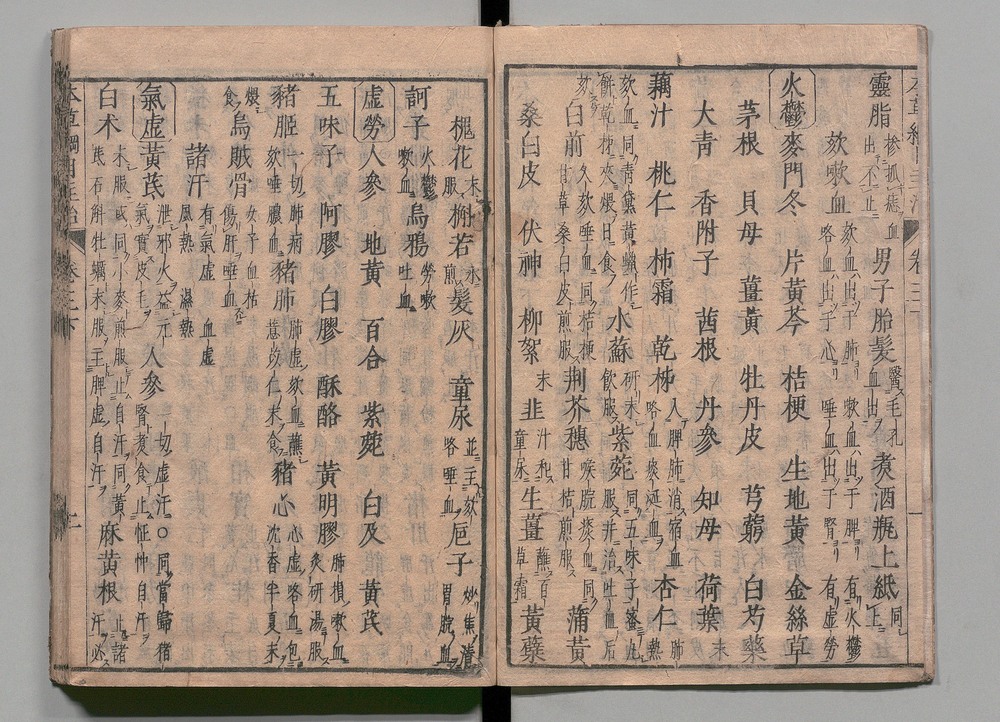 靈脂 男子胎髮 煮酒瓶上紙
欬嗽血 欬血出于肺 嗽血出于脾 有火鬱
咯血出于心 唾血出于腎 有虛勞
火鬱 麥門冬 片黃芩 桔梗 生地黃 金絲草
茅根 貝母 薑黃 牡丹皮 芎藭 白芍藥
大青 香附子 茜根 丹參 知母 荷葉末
藕汁 桃仁 柿霜 乾柹 入脾肺消宿血咯血痰涎血 杏仁 肺熱
欬血同青黛黃蠟作餅乾柹夾煨日食 水蘇 研末飲服 紫菀 同五味子蜜丸服并治吐血后
欬 白前 久欬唾血同桔梗甘草桑白皮煎服 荊芥穗 喉脘痰血同甘桔煎服 蒲黃
桑白皮 伏神 柳絮末 韭汁和童尿 生薑蘸百草霜 黃蘗
槐花末服 槲若水煎 髮灰 童尿 並主欬咯唾血 卮子 炒焦清胃脘血
訶子 火鬱嗽血 烏鴉 勞嗽吐血
虛勞 人參 地黃 百合 紫菀 白及 黃芪
五味子 阿膠 白膠 酥酪 黃明膠 肺損嗽血炙研湯服
豬胰 一切肺病欬唾膿血 豬肺 肺虛欬血蘸薏苡仁末食 豬心 心虛咯血包沈香半夏末
煨食 烏賊骨 女子血枯傷肝唾血
諸汗 有氣虛 血虛
風熱 濕熱
氣虛 黃芪 泄邪火益元氣實皮毛 人參 一切虛汗○同當歸豬腎煮食止怔忡自汗
白术 末服或同小麥煎服止自汗同黃芪石斛牡蠣末服主脾虛自汗 麻黃根 止諸汗必